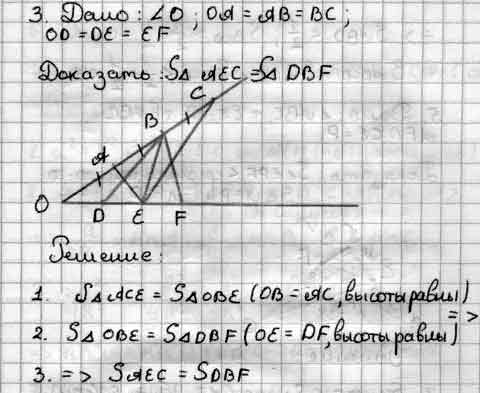 3. Дано: ∠O; OA = AB = BC;
OD = DE = EF
Доказать: S△ AEC = S△ DBF
C
B
A
O
D E F
Решение:
1. S△ ACE = S△ OBE (OB = AC, высоты равны)
=>
2. S△ OBE = S△ DBF (OE = DF, высоты равны)
3. => SAEC = SDBF